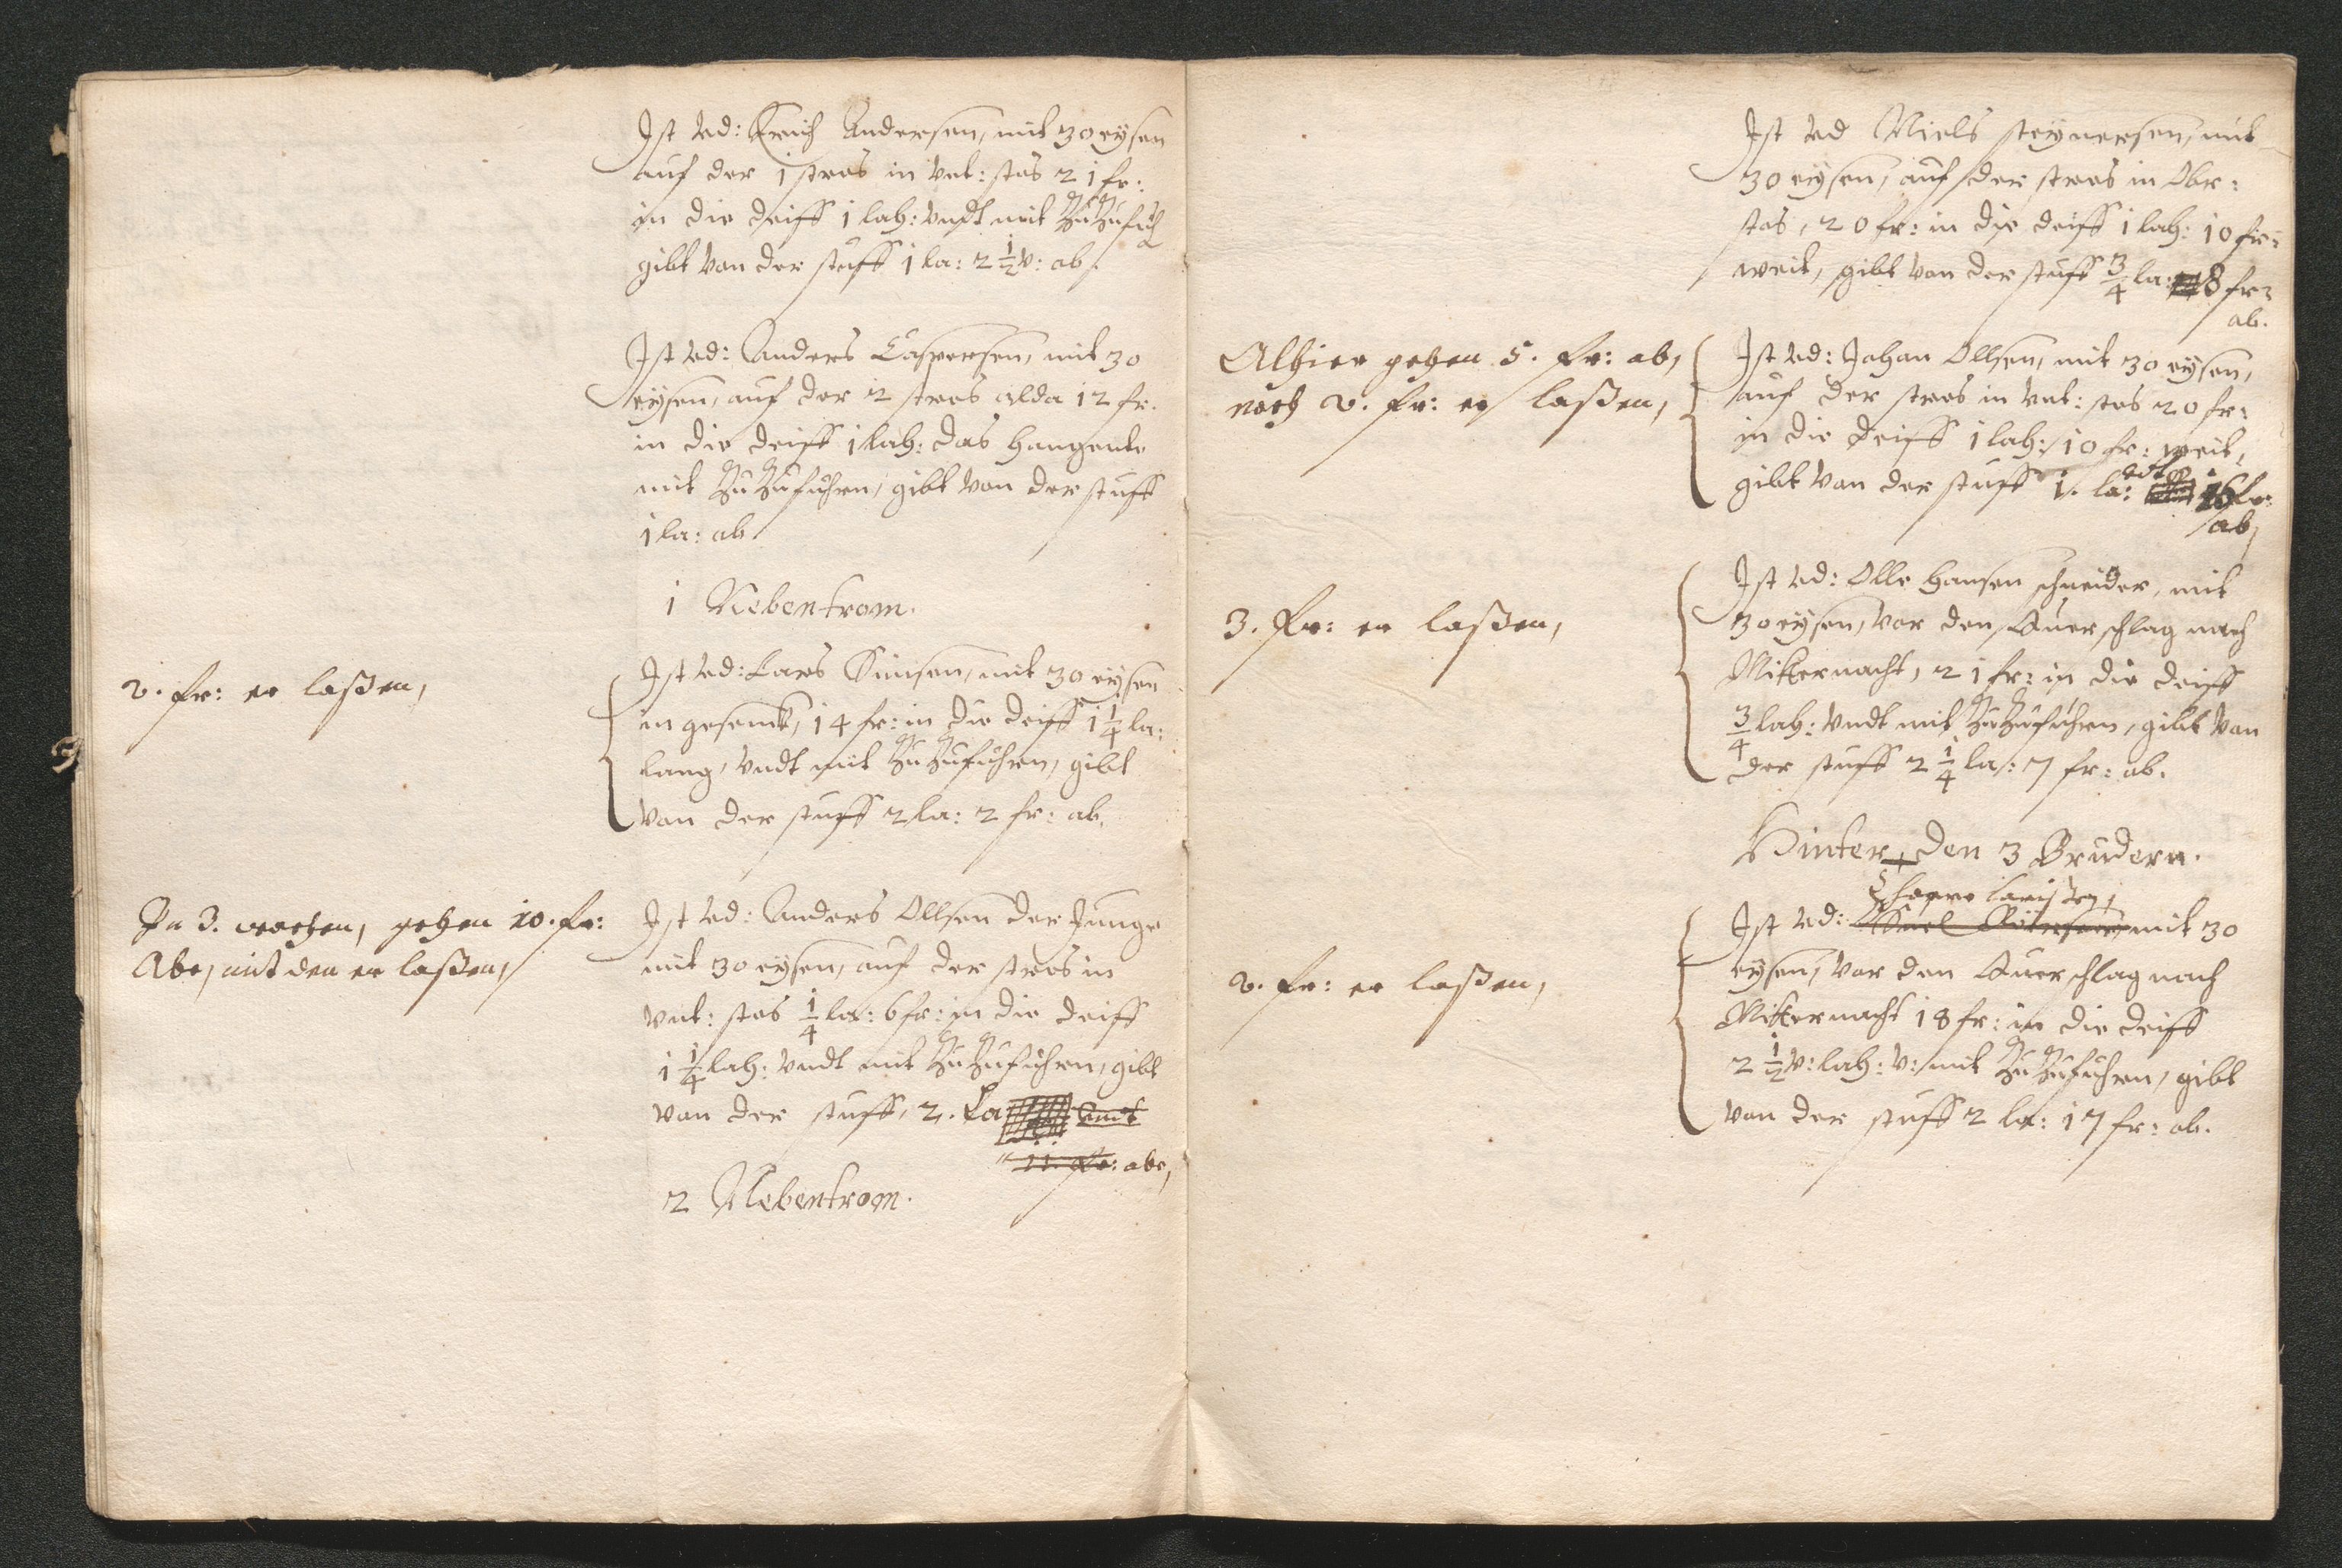 Ist Ved: Erich Andersen, mit 30 eysen
auf der 1 stros in Vnt: stos 21 fr:
in die deiff 1 lah: Vndt mit Zu Zufuh
gibt von der stuff 1 la: 2 1/2 v: ab.
Ist Ved: Anders Caspersen, mit 30
eysen, auf der 2 stros alda 12 fr.
in die deiff 1 lah: das hangente
mit Zu Zufuhren, gibt von der stuff
1 la: ab
1 Nebentrom.
2. fr: er laßen,
Ist Ved: Lars Simsen, mit 30 eysen
im gesenck, 14 fr: in die deiff 1 1/4 la:
lang, Vndt mit Zu Zufuhren, gibt
von der stuff 2 la: 2 fr: ab.
In 3. wochen, gehen 10. fr:
Abe, mit den er laßen,
Ist Ved: Anders Ollsen der Junge
mit 30 eysen, auf der stros in
Vnt: stos 1/4 la: 6 fr: in die deiff
1 1/4 lah: Vndt mit Zu Zufuhren, gibt
von der stuff, 2. La
11. fr: abe,
2 Nebentrom.
Ist Ved Niels steynersen, mit
30 eysen, auf der stros in Obr:
stos, 20 fr: in die deiff 1 lah: 10 fr:
weit, gibt von der stuff 3/4 la: 8 fr:
ab.
Alhier gehen 5. fr: ab,
noch 2. fr: er laßen,
Ist Ved: Johan Ollsen, mit 30 eysen,
auf der stros in Vnt: stos 20 fr:
in die deiff 1 lah: 10 fr: weit,
gibt von der stuff 1. la: 16 fr:
ab,
3. fr: er laßen,
Ist Ved: Olle Hansen schneider, mit
30 eysen, vor den Querschlag nach
Mitternacht, 21 fr: in die deiff
3/4 lah: Vndt mit Zu Zufuhren, gibt von
der stuff 2 1/4 la: 7 fr: ab.
Hinter den 3 Brudern.
2. fr: er laßen,
Ist Ved: mit 30
eysen, vor den Querschlag nach
Mitternacht 18 fr: in die deiff
2 1/2 v: lah: v: mit Zu Zufuhren, gibt
von der stuff 2 la: 17 fr: ab.